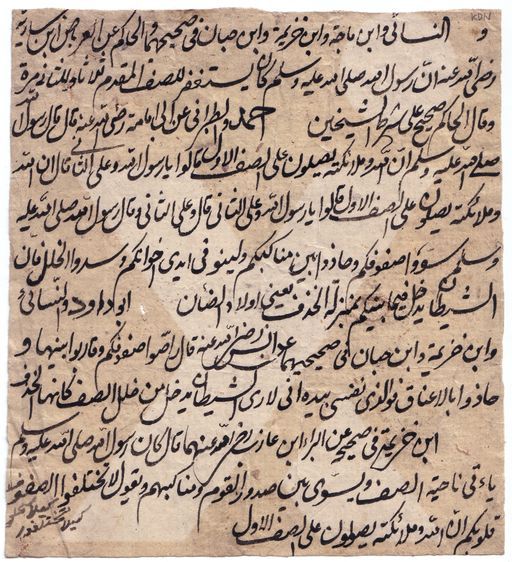 KDN
و النسائى وابن ماجة وابن خزيمة وابن حبان فى صحيحهما والحاكم عن العرباض ابن سارية
رضى الله عنه ان رسول الله صلى الله عليه وسلم كان يستغفر للصف المقدم ثلاثا وللثانى مرة
وقال الحاكم صحيح على شرط الشيخين احمد والطبرانى عن ابى امامة رضى الله عنه قال قال رسول الله
صلى الله عليه وسلم ان الله وملائكته يصلون على الصف الاول قالوا يا رسول الله وعلى الثانى قال ان الله
وملائكته يصلون على الصف الاول قالوا يا رسول الله وعلى الثانى قال وعلى الثانى وقال رسول الله صلى الله عليه
وسلم سووا صفوفكم وحاذوا بين مناكبكم ولينوا فى ايدى اخوانكم وسدوا الخلل فان
الشيطان يدخل فيما بينكم بمنزلة الحذف يعنى اولاد الضان ابو داود والنسائى و
وابن خزيمة وابن حبان فى صحيحهما عن انس رضى الله عنه قال رصوا صفوفكم وقاربوا بينها و
حاذوا بالاعناق فوالذى نفسى بيده انى لارى الشيطان يدخل من خلل الصف كانها الحذف
ابن خزيمة فى صحيحه عن البراء ابن عازب رضى الله عنهما قال كان رسول الله صلى الله عليه وسلم
ياتى ناحية الصف ويسوى بين صدور القوم ومناكبهم ويقول لا تختلفوا فتختلف
قلوبكم ان الله وملائكته يصلون على الصف الاول